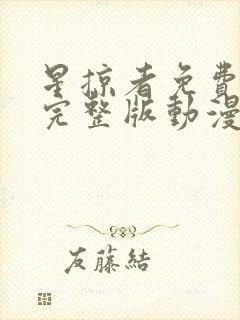 星掠者免費
完整版動漫
友藤結